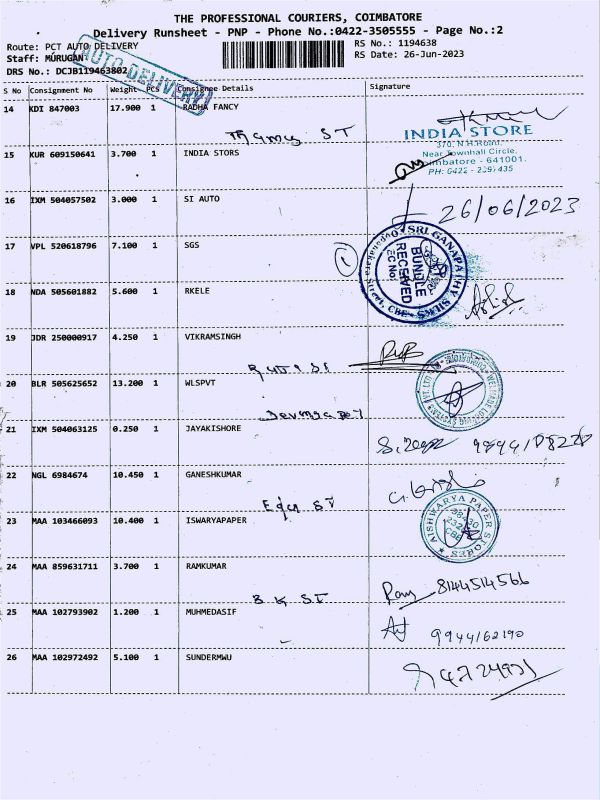 THE PROFESSIONAL COURIERS, COIMBATORE
Delivery Runsheet - PNP - Phone No.:0422-3505555 - Page No.:2
Route: PCT AUTO DELIVERY
RS No.: 1194638
Staff: MURUGAN
RS Date: 26-Jun-2023
DRS No.: DCJB119463802
AUTO DELIVERY
S No Consignment No Weight PCS Consignee Details Signature
14 KDI 847003 17.900 1 RADHA FANCY
ST
INDIA STORE
370, N.H.Road,
Near Townhall Circle,
Coimbatore - 641001.
15 KUR 609150641 3.700 1 INDIA STORS
16 IXM 504057502 3.000 1 SI AUTO
26/06/2023
17 VPL 520618796 7.100 1 SGS
1
SRI GANAPATHY
BUNDLE
RECEIVED
18 NDA 505601882 5.600 1 RKELE
19 JDR 250000917 4.250 1 VIKRAMSINGH
20 BLR 505625652 13.200 1 WLSPVT
21 IXM 504063125 0.250 1 JAYAKISHORE
22 NGL 6984674 10.450 1 GANESHKUMAR
23 MAA 103466093 10.400 1 ISWARYAPAPER
AISHWARYA PAPER STORES
24 MAA 859631711 3.700 1 RAMKUMAR
8144514566
B K ST
25 MAA 102793902 1.200 1 MUHMEDASIF
9944162190
26 MAA 102972492 5.100 1 SUNDERMWU